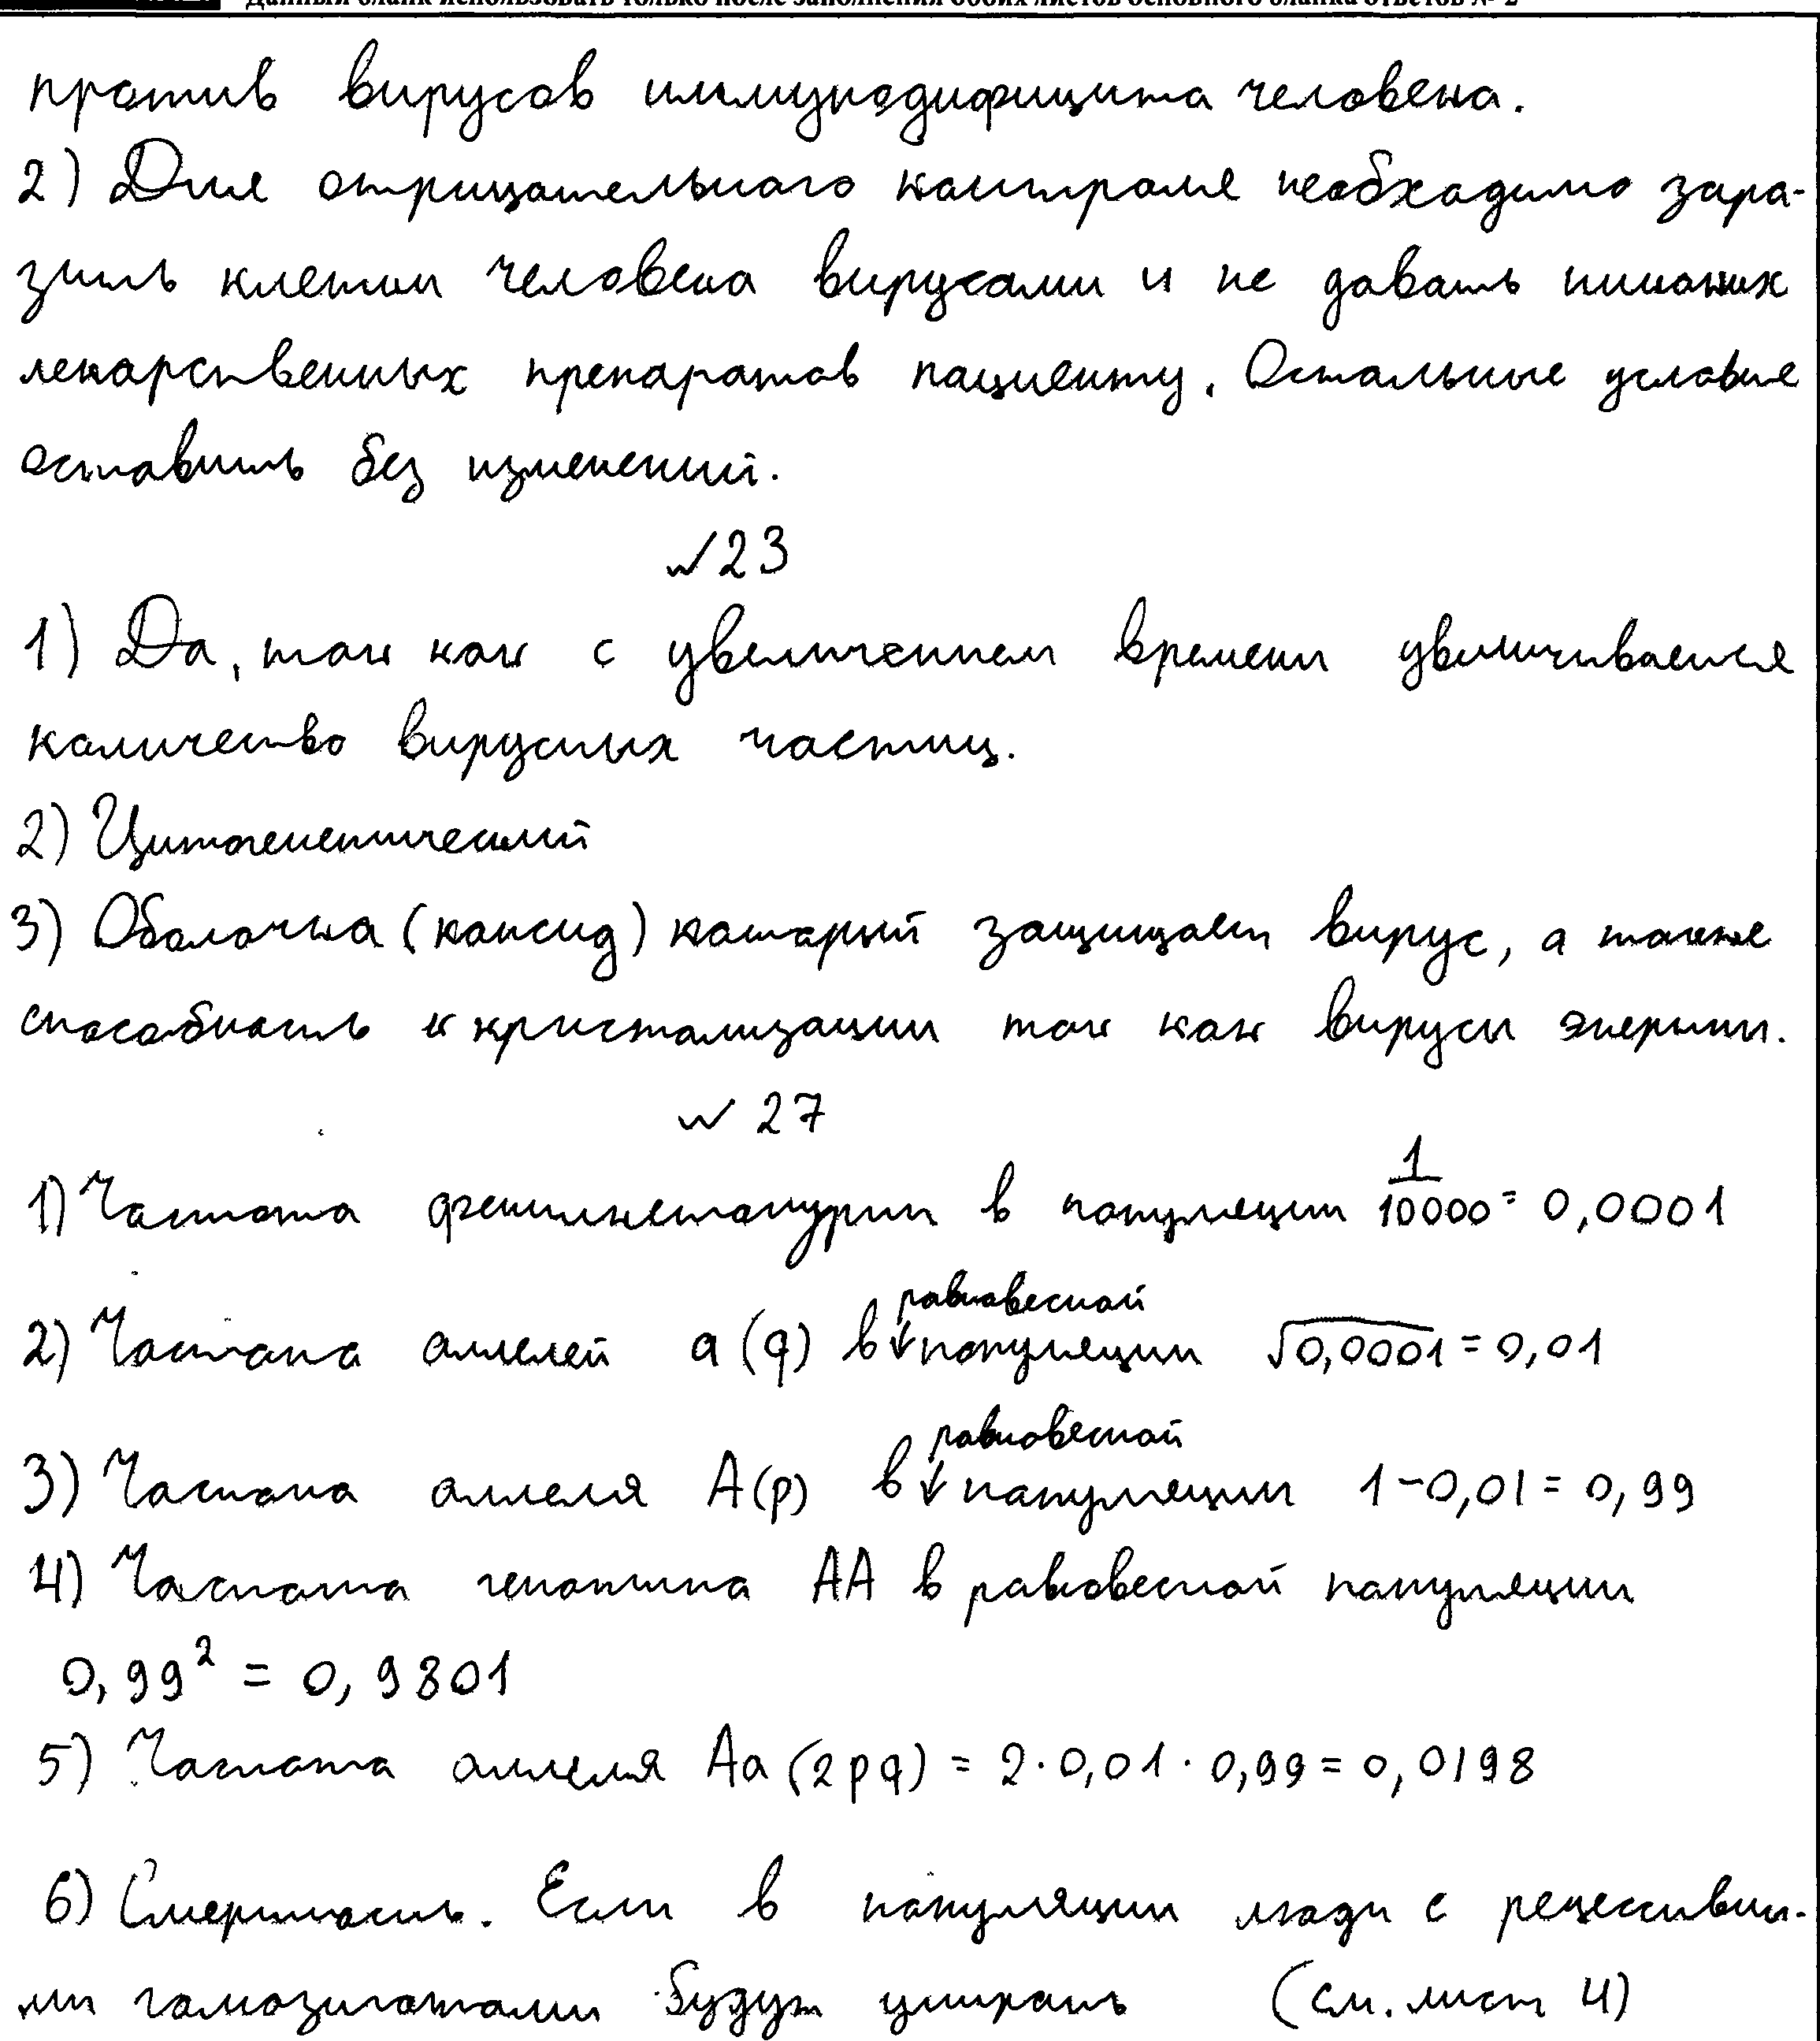 Данный бланк использовать только после заполнения обоих листов основного бланка ответов № 2
против вирусов иммунодифицита человека.
2) Для отрицательного контроля необходимо зара-
зить клетки человека вирусами и не давать никаких
лекарственных препаратов пациенту. Остальные условия
оставить без изменений.
№23
1) Да, так как с увеличением времени увеличивается
количество вирусных частиц.
2) Цитогенетический
3) Оболочка (капсид) который защищает вирус, а также
способность к кристализации так как вирусы инертны.
№ 27
1) Частота фенилкетонурии в популяции 1/10000 = 0,0001
2) Частота аллелей a (q) в равновесной популяции √0,0001 = 0,01
3) Частота аллеля A(p) в равновесной популяции 1-0,01 = 0,99
4) Частота генотипа AA в равновесной популяции
0,99² = 0,9801
5) Частота аллеля Aa (2pq) = 2·0,01·0,99 = 0,0198
6) Смертность. Если в популяции люди с рецессивны-
ми гомозиготами будут умирать (см. лист 4)